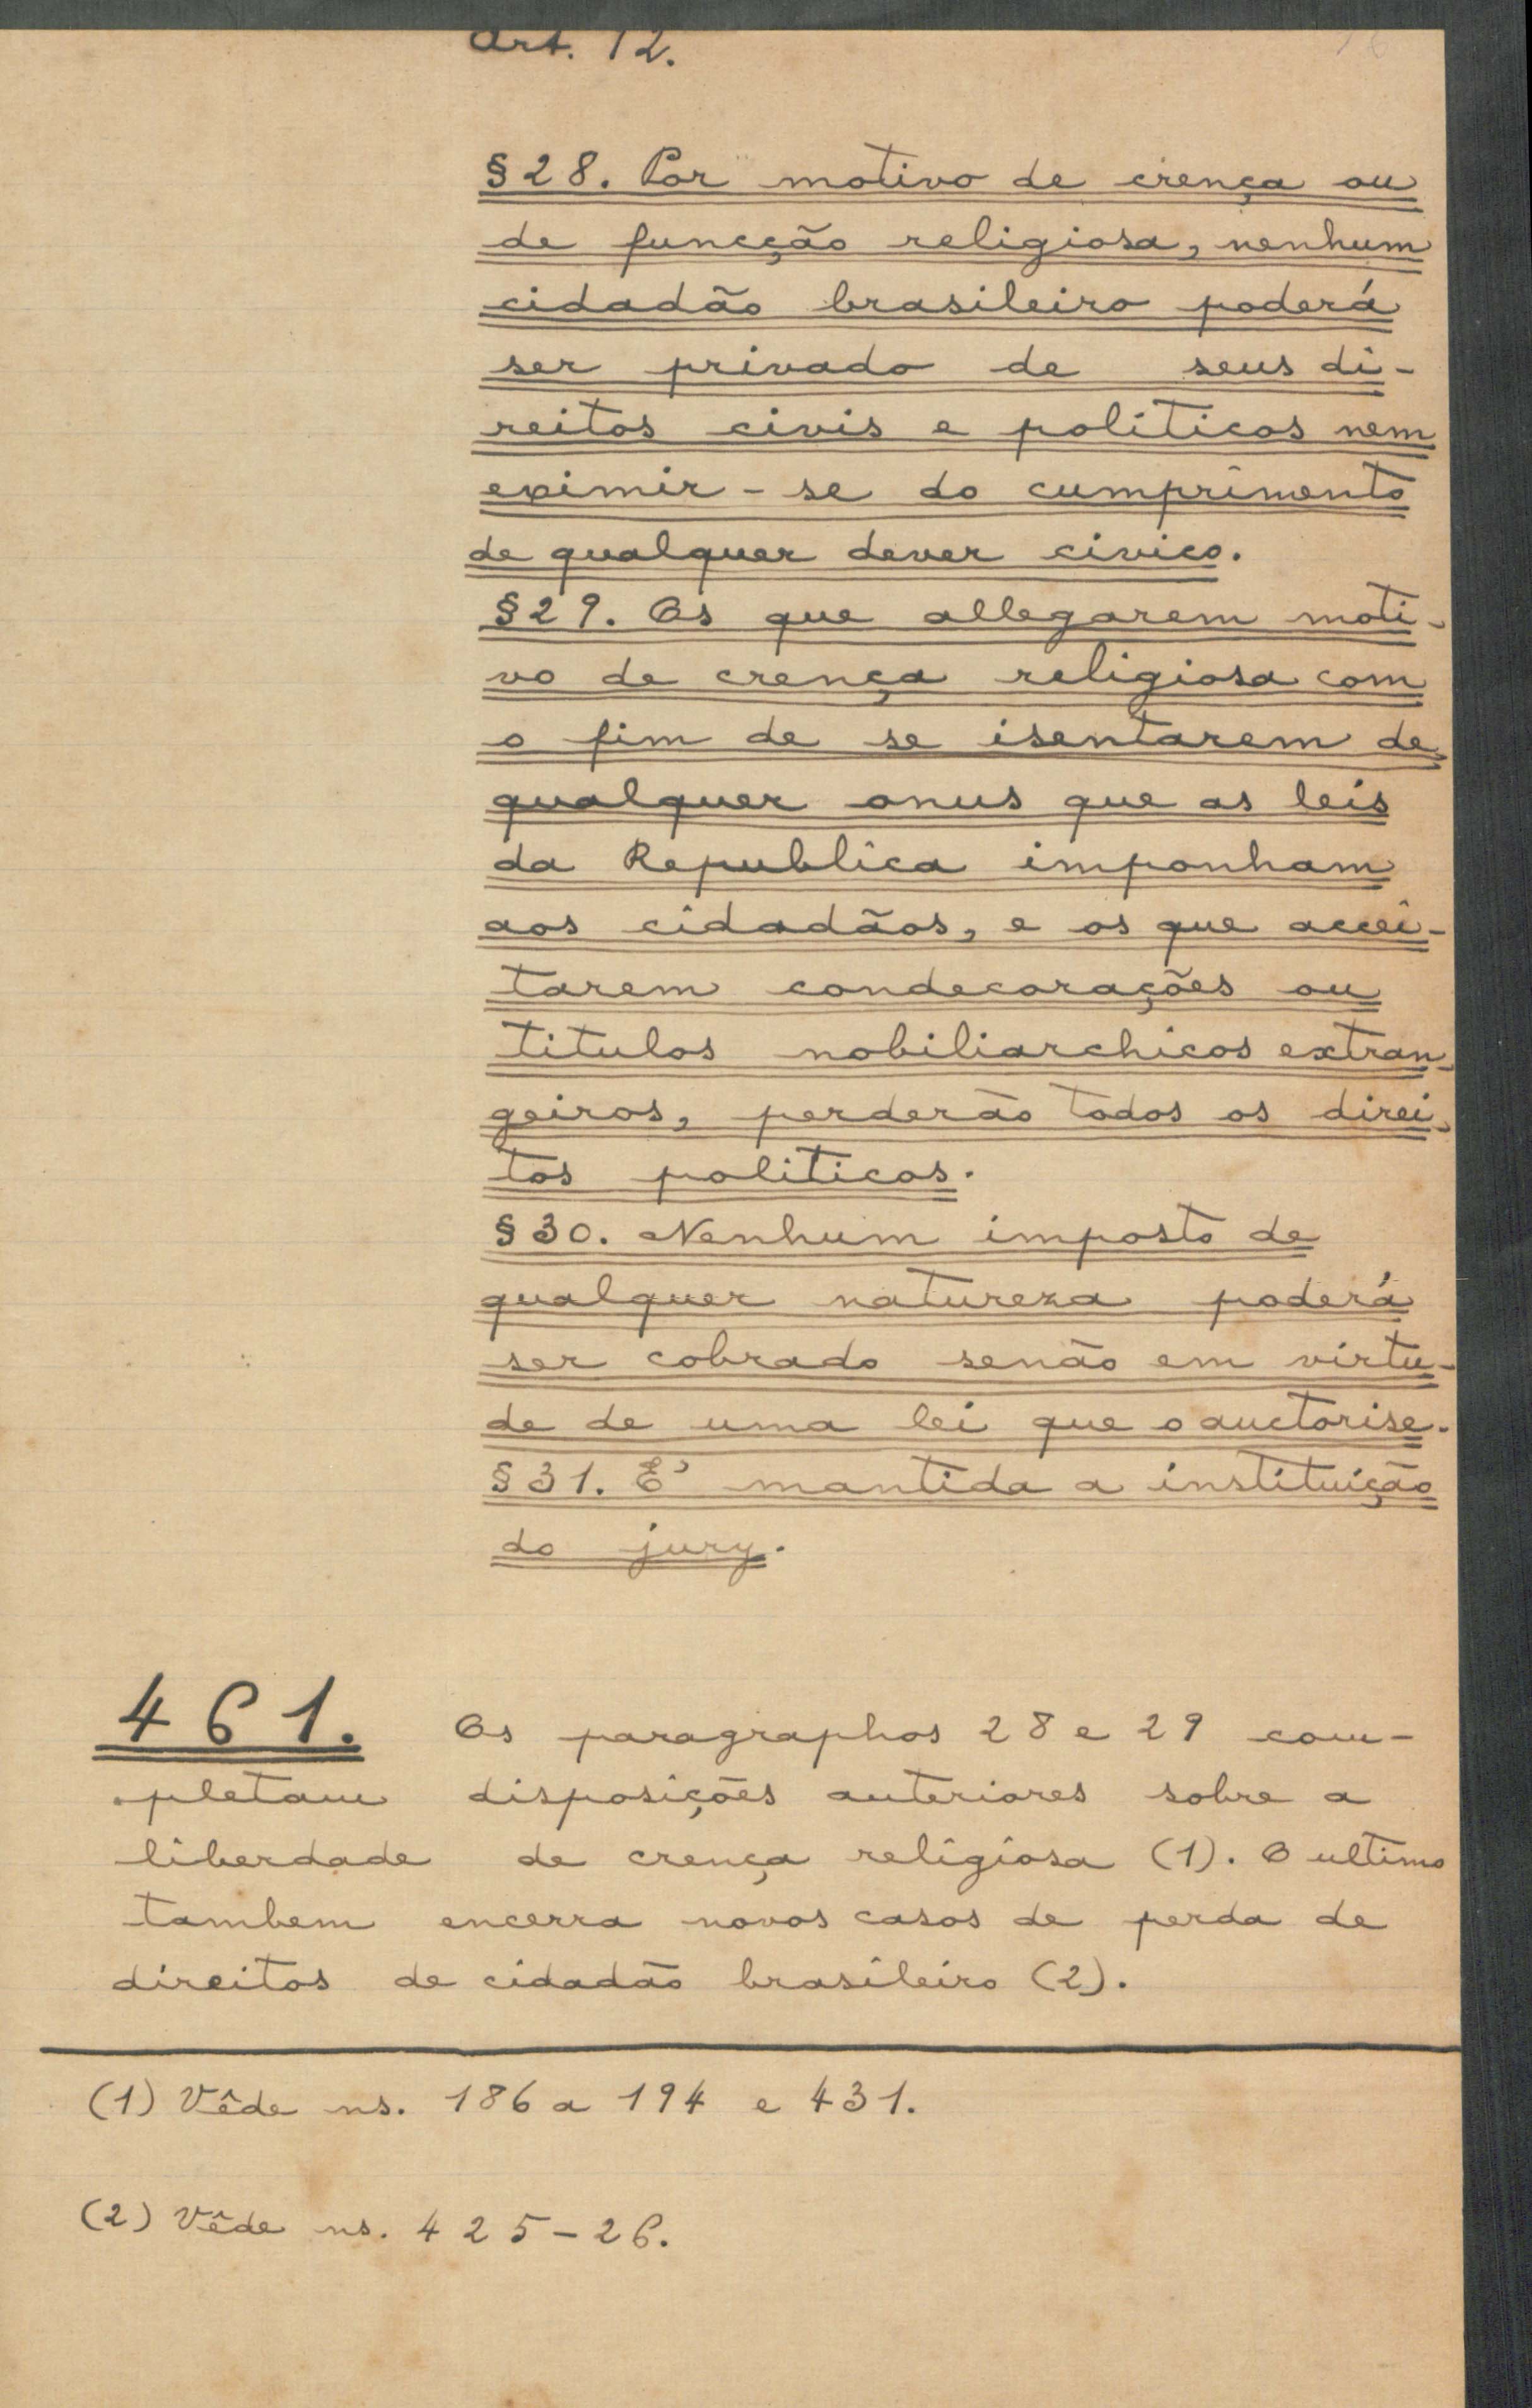 Art. 12.
§ 28. Por motivo de crença ou
de funcção religiosa, nenhum
cidadão brasileiro poderá
ser privado de seus di-
reitos civis e politicos nem
eximir-se do cumprimento
de qualquer dever civico.
§ 29. Os que allegarem moti-
vo de crença religiosa com
o fim de se isentarem de
qualquer onus que as leis
da Republica imponham
aos cidadãos, e os que accei-
tarem condecorações ou
titulos nobiliarchicos extran-
geiros, perderão todos os direi-
tos politicos.
§ 30. Nenhum imposto de
qualquer natureza poderá
ser cobrado senão em virtu-
de de uma lei que o auctorise.
§ 31. E' mantida a instituição
do jury.
461. Os paragraphos 28 e 29 com-
pletam disposições anteriores sobre a
liberdade de crença religiosa (1). O ultimo
tambem encerra novos casos de perda de
direitos de cidadão brasileiro (2).
(1) Vêde ns. 186 a 194 e 431.
(2) Vêde ns. 425-26.